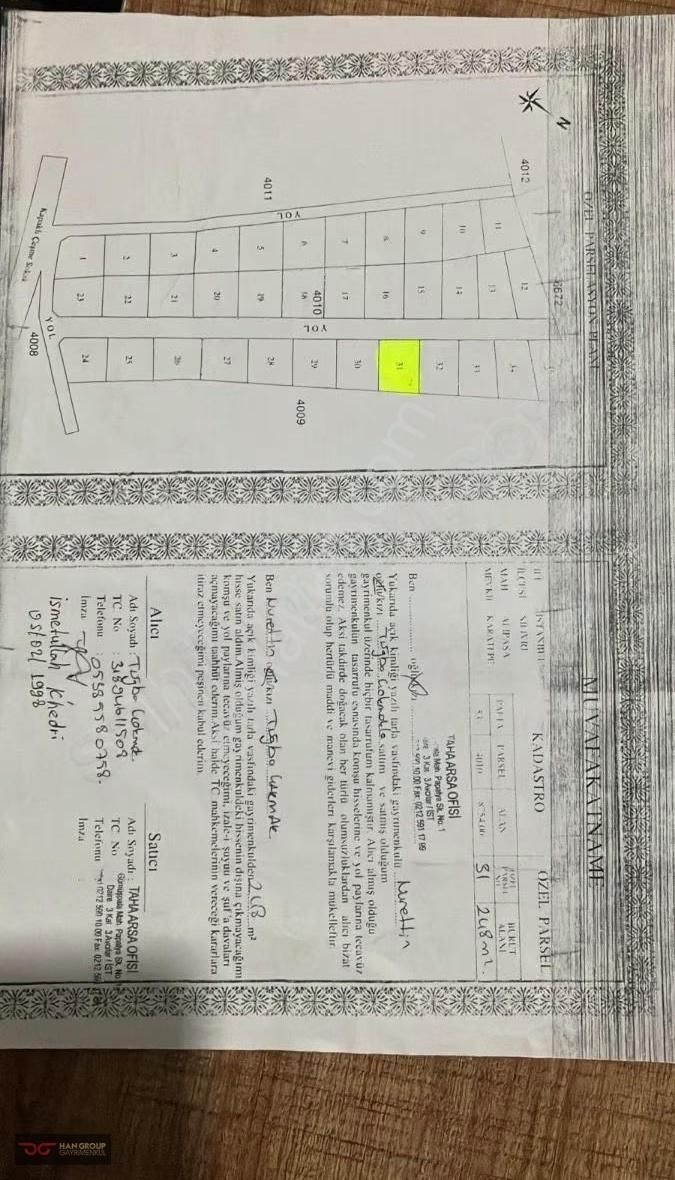 ÖZEL PARSELASYON PLANI
N
4012
6672
4011
YOL
11
10
9
8
7
6
5
4
3
2
1
12
13
14
15
16
17
18
4010
19
20
21
22
23
YOL
34
33
32
31
30
29
28
27
26
25
24
4009
YOL
4008
MUVAFAKATNAME
KADASTRO
ÖZEL PARSEL
İLİ İSTANBUL
İLÇESİ SİLİVRİ
MAH. ALİPAŞA
MEVKİİ KARATEPE
PAFTA
PARSEL
ALAN
ÖZEL PARSEL NO
BÜRÜT ALAN
4010
31
248 m².
TAHA ARSA OFİSİ
Mah. Papatya Sk. No: 1
Daire 3 Kat 3 Avcılar / İST
591 10 00 Fax: 0212 591 17 69
Ben ........ oğlu/kızı ........ Nurettin
oğlu/kızı ..... Tuğba ..... sattım ve satmış olduğum
Yukarıda açık kimliği yazılı tarla vasfındaki gayrimenkulü
gayrimenkul üzerinde hiçbir tasarrufum kalmamıştır. Alıcı almış olduğu
gayrimenkulün tasarrufu esnasında komşu hisselerine ve yol paylarına tecavüz
edemez. Aksi takdirde doğacak olan her türlü olumsuzluklardan alıcı bizat
sorumlu olup hertürlü maddi ve manevi giderleri karşılamakla mükelleftir.
Ben Nurettin oğlu/kızı Tuğba
Yukarıda açık kimliği yazılı tarla vasfındaki gayrimenkulden 248 m²
hisse satın aldım. Almış olduğum gayrimenkuldeki hissenin dışına çıkmayacağımı
komşu ve yol paylarına tecavüz etmeyeceğimi, izale-i şuyuu ve şuf'a davaları
açmayacağımı taahhüt ederim. Aksi halde TC mahkemelerinin vereceği kararlara
itiraz etmeyeceğimi peşinen kabul ederim.
Alıcı
Adı Soyadı : Tuğba
TC No : 31894611509
Telefonu : 05559580758.
İmza :
ismetullah
05/02/1998
Satıcı
Adı Soyadı : TAHA ARSA OFİSİ
TC No : Gümüşpala Mah. Papatya Sk. No: 1
Daire 3 Kat 3 Avcılar / İST
Telefonu : 0212 591 10 00 Fax: 0212 591
İmza :
HAN GROUP
GAYRİMENKUL